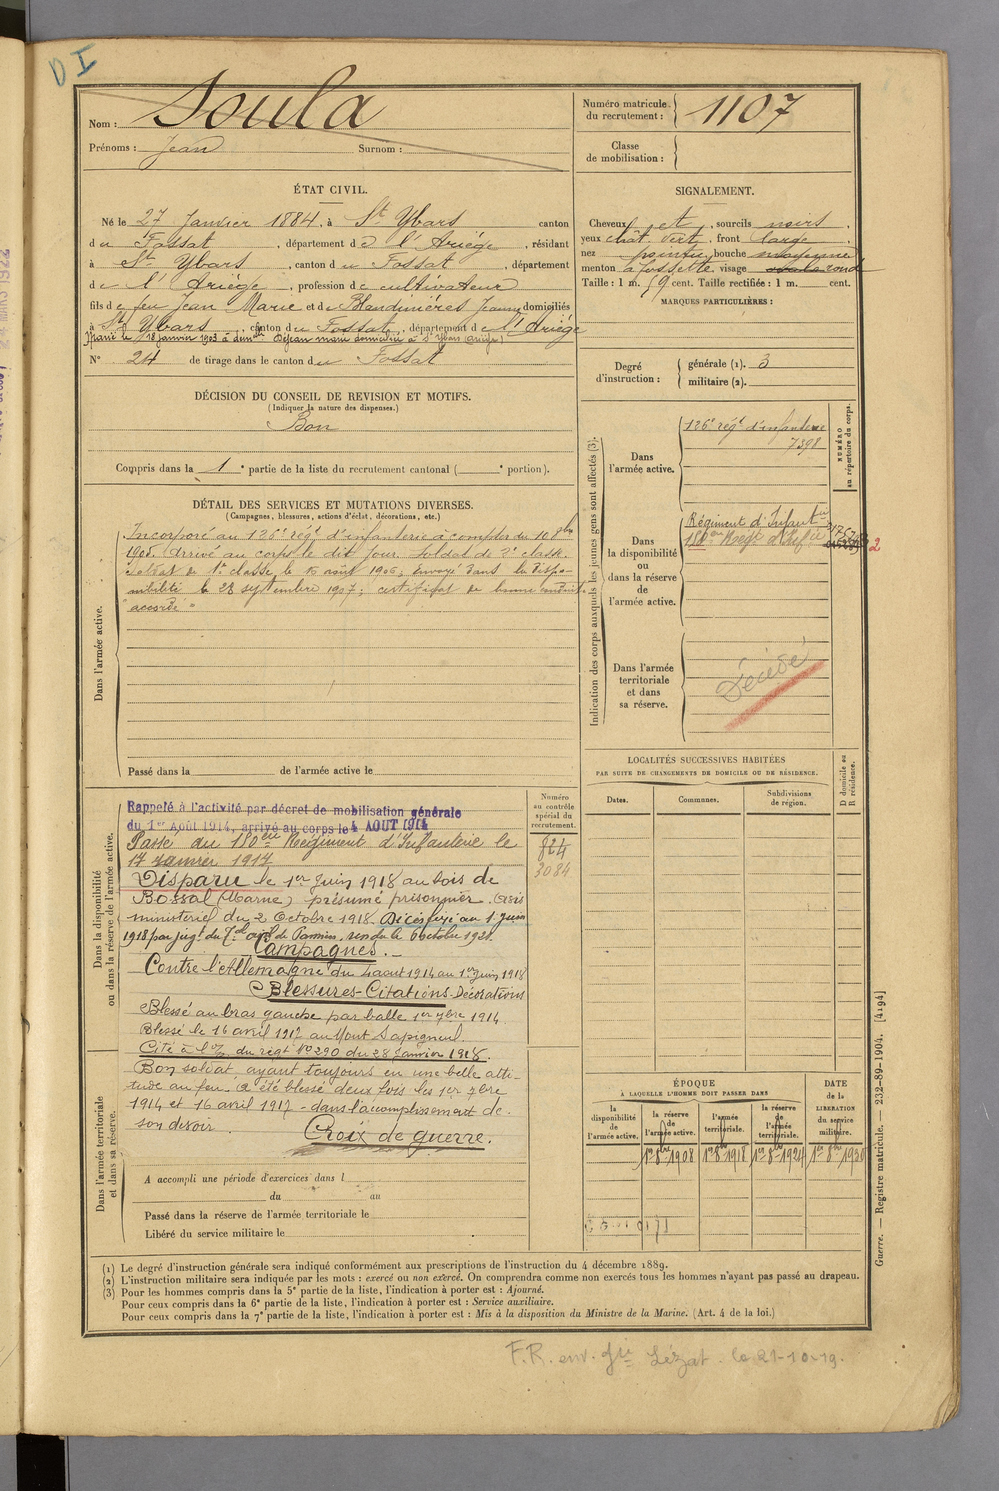 D I
Nom : Soula
Prénoms : Jean Surnom :
Numéro matricule du recrutement : 1107
Classe de mobilisation :
ÉTAT CIVIL.
Né le 27 Janvier 1884, à St Ybars canton
du Fossat, département de l'Ariége, résidant
à St Ybars, canton du Fossat, département
de l'Ariége, profession de cultivateur
fils de feu Jean Marie et de Blandinières Jeanne domiciliés
à St Ybars, canton du Fossat, département de l'Ariége
Marié le 18 janvier 1903 à demlle Déjean domiciliée à St Ybars (Ariége)
N° 24 de tirage dans le canton du Fossat
SIGNALEMENT.
Cheveux et, sourcils noirs,
yeux chât. vert, front large
nez pointu, bouche moyenne
menton à fossette, visage ovale rond
Taille : 1 m. 59 cent. Taille rectifiée : 1 m. cent.
MARQUES PARTICULIÈRES :
Degré d'instruction :
générale (1). 3
militaire (2).
DÉCISION DU CONSEIL DE REVISION ET MOTIFS.
(Indiquer la nature des dispenses.)
Bon
Compris dans la 1e partie de la liste du recrutement cantonal ( e portion).
DÉTAIL DES SERVICES ET MUTATIONS DIVERSES.
(Campagnes, blessures, actions d'éclat, décorations, etc.)
Dans l'armée active.
Incorporé au 126e régt d'infanterie à compter du 10 8bre
1905. Arrivé au corps le dit jour. Soldat de 2e classe.
Soldat de 1e classe le 15 août 1906; envoyé dans la dispo-
nibilité le 28 septembre 1907; certificat de bonne conduite
"accordé"
Passé dans la de l'armée active le
Indication des corps auxquels les jeunes gens sont affectés (3).
NUMÉRO au répertoire du corps.
Dans l'armée active.
126e régt d'infanterie
7398
Dans la disponibilité ou dans la réserve de l'armée active.
Régiment d'Infantie
180e Regt d'Infie
2
Dans l'armée territoriale et dans sa réserve.
Décédé
LOCALITÉS SUCCESSIVES HABITÉES
PAR SUITE DE CHANGEMENTS DE DOMICILE OU DE RÉSIDENCE.
Dates. Communes. Subdivisions de région.
D domicile ou R résidence.
Dans la disponibilité ou dans la réserve de l'armée active.
Numéro au contrôle spécial du recrutement.
824
3084
Rappelé à l'activité par décret de mobilisation générale
du 1er Août 1914, arrivé au corps le 4 AOUT 1914
Passé du 180eme Régiment d'Infanterie le
17 janvier 1917
Disparu le 1er Juin 1918 au bois de
Bossal (Marne) présumé prisonnier. Avis
ministeriel du 2 Octobre 1918. Décès fixé au 1er Juin
1918 par jugt du Tal civil de Pamiers, rendu le 6 octobre 1921.
Campagnes.-
Contre l'Allemagne du 4 aout 1914 au 1er Juin 1918
Blessures-Citations-Décorations
Blessé au bras gauche par balle 1er 7bre 1914
Blessé le 16 avril 1917 au Mont Sapigneul.
Cité à l'o/ du régt No 290 du 28 Janvier 1918.
Bon soldat, ayant toujours eu une belle atti-
tude au feu. A été blessé deux fois les 1er 7bre
1914 et 16 avril 1917 - dans l'accomplissement de
son devoir. Croix de guerre.
Dans l'armée territoriale et dans sa réserve.
A accompli une période d'exercices dans l
du au
Passé dans la réserve de l'armée territoriale le
Libéré du service militaire le
ÉPOQUE
À LAQUELLE L'HOMME DOIT PASSER DANS
la disponibilité de l'armée active. la réserve de l'armée active. l'armée territoriale. la réserve de l'armée territoriale.
DATE de la LIBÉRATION du service militaire.
1er 8bre 1908 1er 8bre 1918 1er 8bre 1924 1er 8bre 1930
Guerre. — Registre matricule. — 232-89-1904. [4194]
(1) Le degré d'instruction générale sera indiqué conformément aux prescriptions de l'instruction du 4 décembre 1889.
(2) L'instruction militaire sera indiquée par les mots : exercé ou non exercé. On comprendra comme non exercés tous les hommes n'ayant pas passé au drapeau.
(3) Pour les hommes compris dans la 5e partie de la liste, l'indication à porter est : Ajourné.
Pour ceux compris dans la 6e partie de la liste, l'indication à porter est : Service auxiliaire.
Pour ceux compris dans la 7e partie de la liste, l'indication à porter est : Mis à la disposition du Ministre de la Marine. (Art. 4 de la loi.)
F.R. env. Gie Lézat. le 21-10-19.